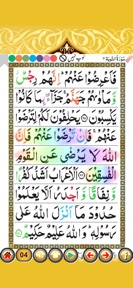 فَاَعْرِضُوْا عَنْهُمْ ؕ اِنَّهُمْ رِجْسٌ
وَّمَاْوٰىهُمْ جَهَنَّمُ ۚ جَزَآءًۢ بِمَا كَانُوْا
يَكْسِبُوْنَ يَحْلِفُوْنَ لَكُمْ لِتَرْضَوْا
عَنْهُمْ ۚ فَاِنْ تَرْضَوْا عَنْهُمْ فَاِنَّ
اللّٰهَ لَا يَرْضٰى عَنِ الْقَوْمِ
الْفٰسِقِيْنَ اَلْاَعْرَابُ اَشَدُّ كُفْرًا
وَّنِفَاقًا وَّاَجْدَرُ اَلَّا يَعْلَمُوْا
حُدُوْدَ مَاۤ اَنْزَلَ اللّٰهُ عَلٰى
رَسُوْلِهٖ ؕ وَاللّٰهُ عَلِيْمٌ
04